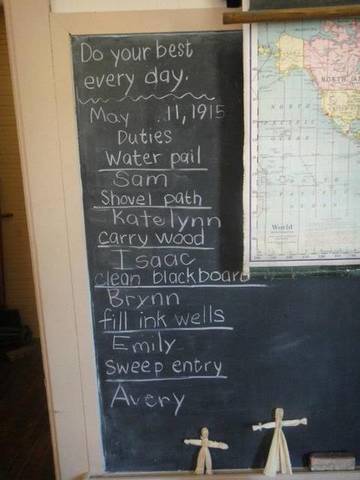 Do your best
every day.
May 11, 1915
Duties
Water pail
Sam
Shovel path
Katelynn
carry wood
Isaac
clean blackboard
Brynn
fill ink wells
Emily
Sweep entry
Avery
World